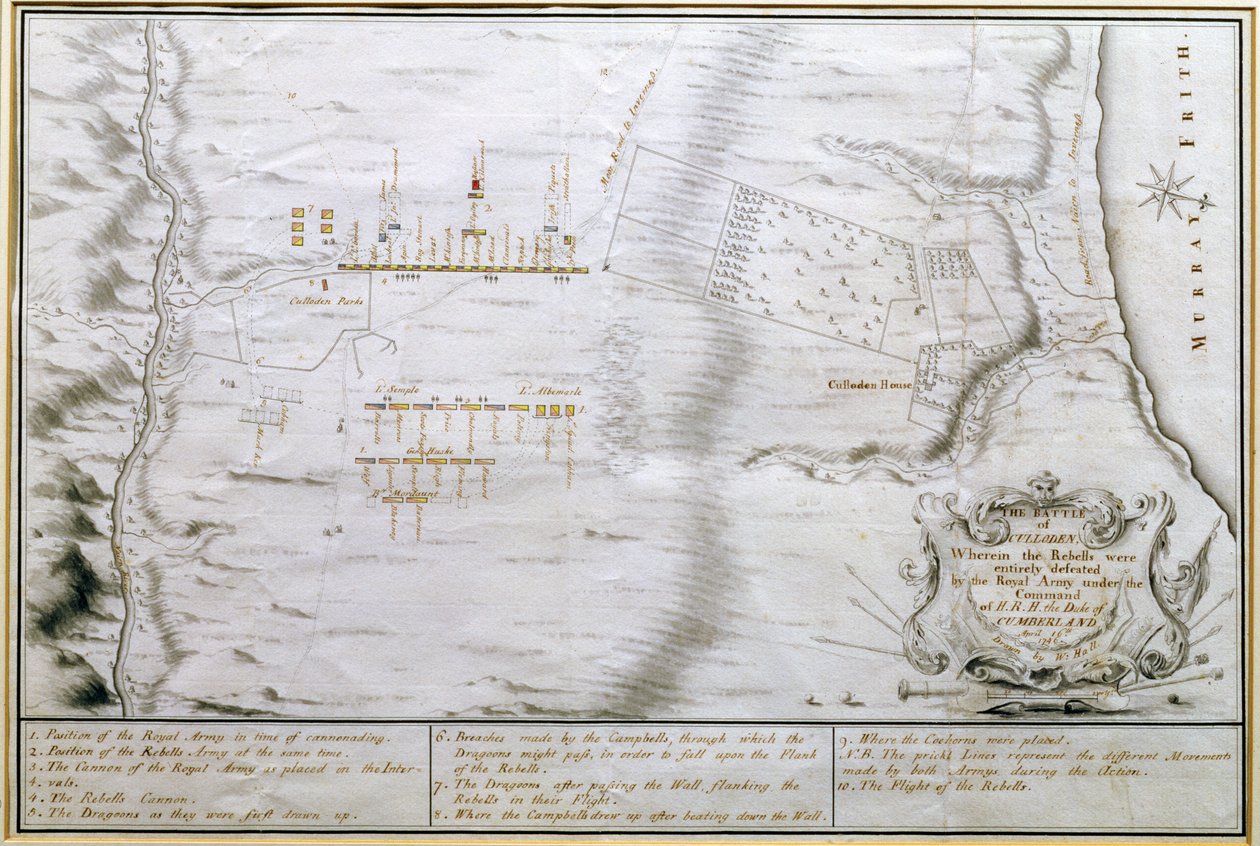 MURRAY FRITH.
10
12
Moor Road to Inverness.
Road from Nairn to Inverness
7
2
Drumond
Kilmarnock
Piquets
Strathallan
8
4
Culloden Parks
6
Cobham
Mark Ker
Culloden House
Ld. Semple
Ld. Albemarle
3
1.
Monro
Price
Cholmondley
Kingston
Cobham
1.
Gel. Huske
Wolf
Ligonier
Sempill
Bligh
Fleming
Howard
Br. Mordaunt
Blakeney
Batereau
THE BATTLE
of
CULLODEN.
Wherein the Rebells were
entirely defeated
by the Royal Army under the
Command
of H.R.H. the Duke of
CUMBERLAND
April 16th
1746.
Drawn by W: Hall.
1. Position of the Royal Army in time of cannonading.
2. Position of the Rebells Army at the same time.
3. The Cannon of the Royal Army as placed in the Inter-
4. vals.
4. The Rebells Cannon.
5. The Dragoons as they were first drawn up.
6. Breaches made by the Campbells, through which the
Dragoons might pass, in order to fall upon the Flank
of the Rebells.
7. The Dragoons after passing the Wall, flanking the
Rebells in their Flight.
8. Where the Campbells drew up after beating down the Wall.
9. Where the Coehorns were placed.
N.B. The prickt Lines represent the different Movements
made by both Armys during the Action.
10. The Flight of the Rebells.